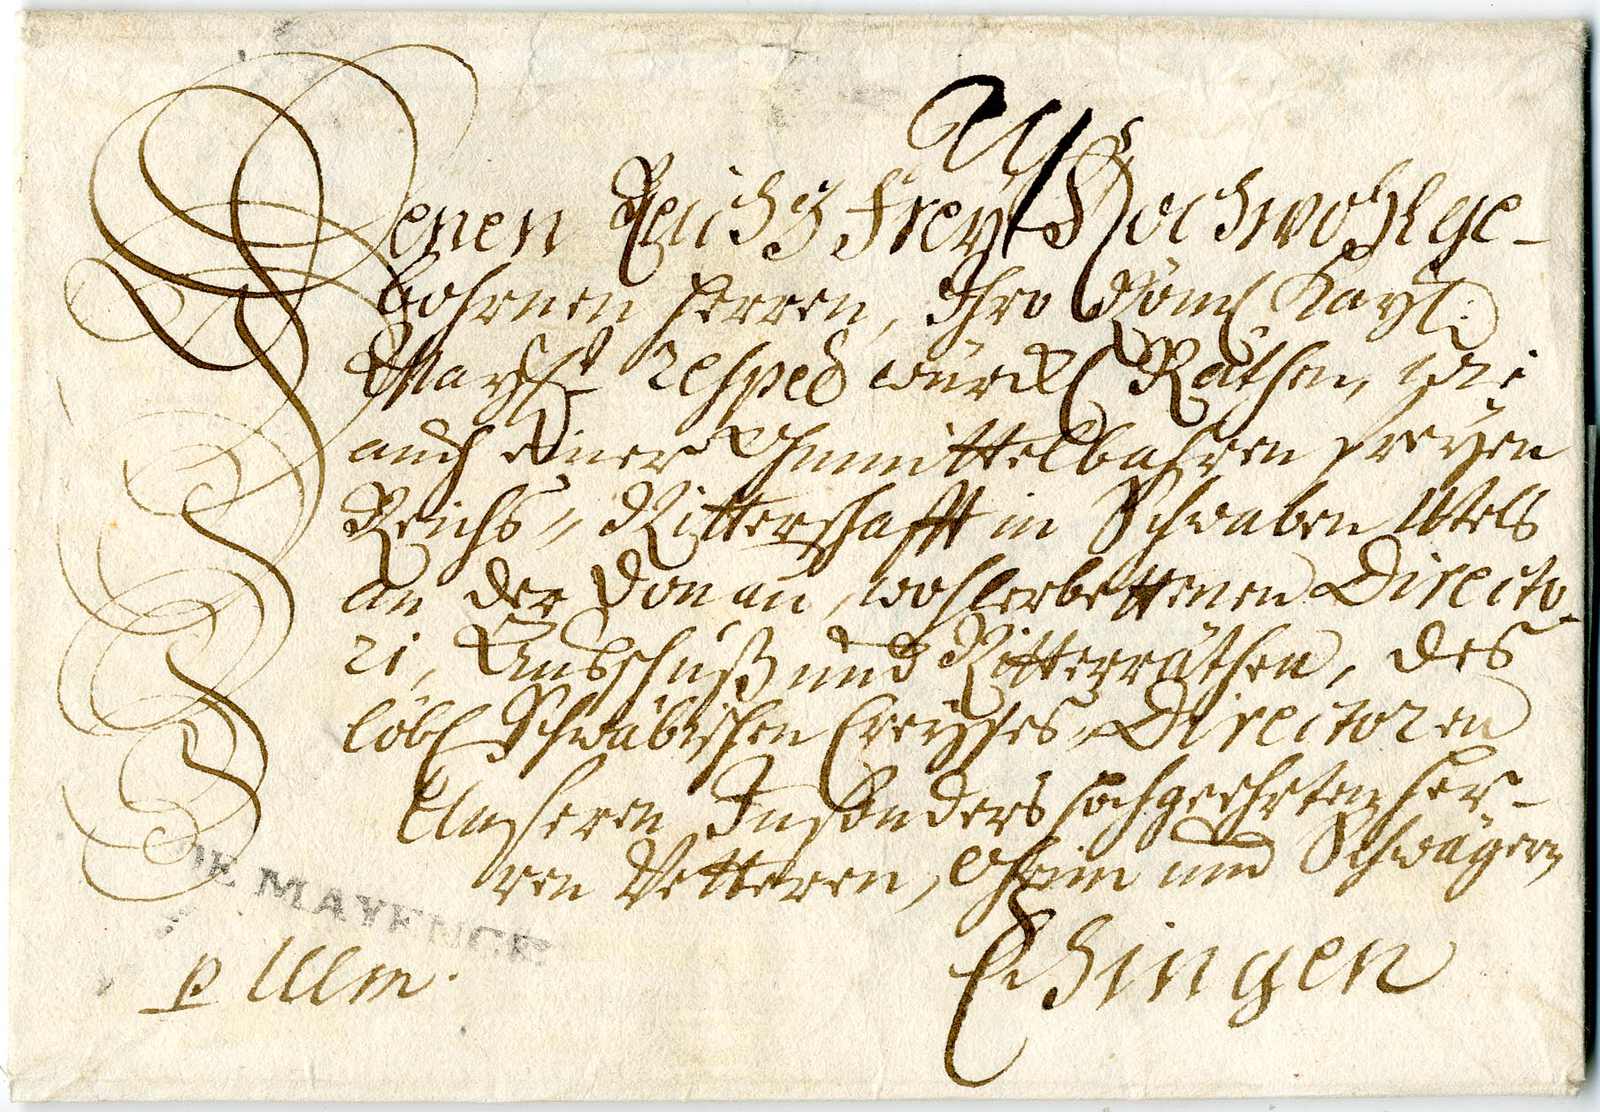 Denen Reichs Frey Hochwohlge-
bohrnen Herren, Ihro Röml Kayl:
Mayst respec würckl Räthen, wie
auch einer Ohnmittelbahren freyen
Reichs-Ritterschafft in Schwaben Viertels
an der Donau, wohlerbettenen Directo-
ri, Ausschuß und Ritterräthen, des
löbl Schwäbischen Creyßes Directoren
Unseren Insonders hochgeehrten Her-
ren Vetteren, Oheim und Schwägern
DE MAYENCE
p Ulm.
Ehingen